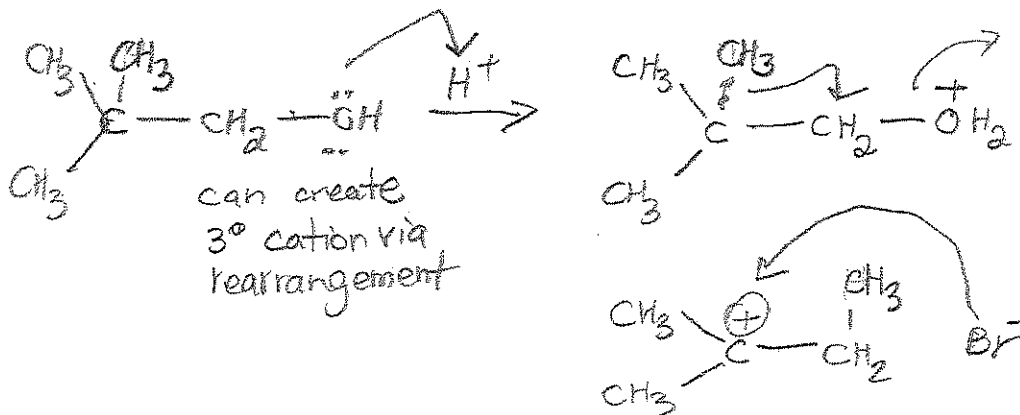 CH₃ CH₃
C — CH₂ — ÖH
CH₃
H⁺
can create
3° cation via
rearrangement
CH₃ CH₃
C — CH₂ — O⁺H₂
CH₃
CH₃ CH₃
C⊕ — CH₂ Br⁻
CH₃